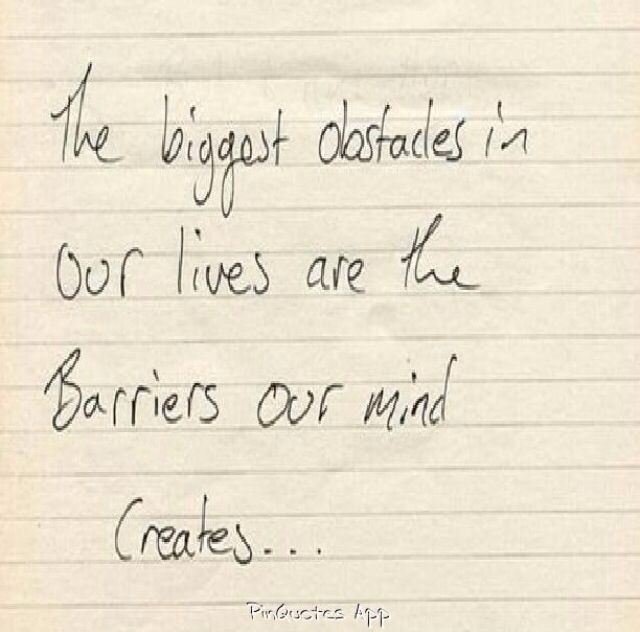 The biggest obstacles in
our lives are the
Barriers our mind
Creates...
PinQuotes App